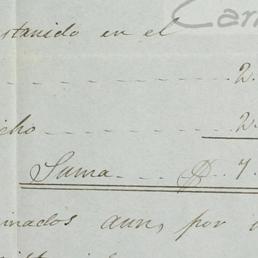 Car
stanido en el
2.
cho 2.
Suma $ 7.
inados aun, por